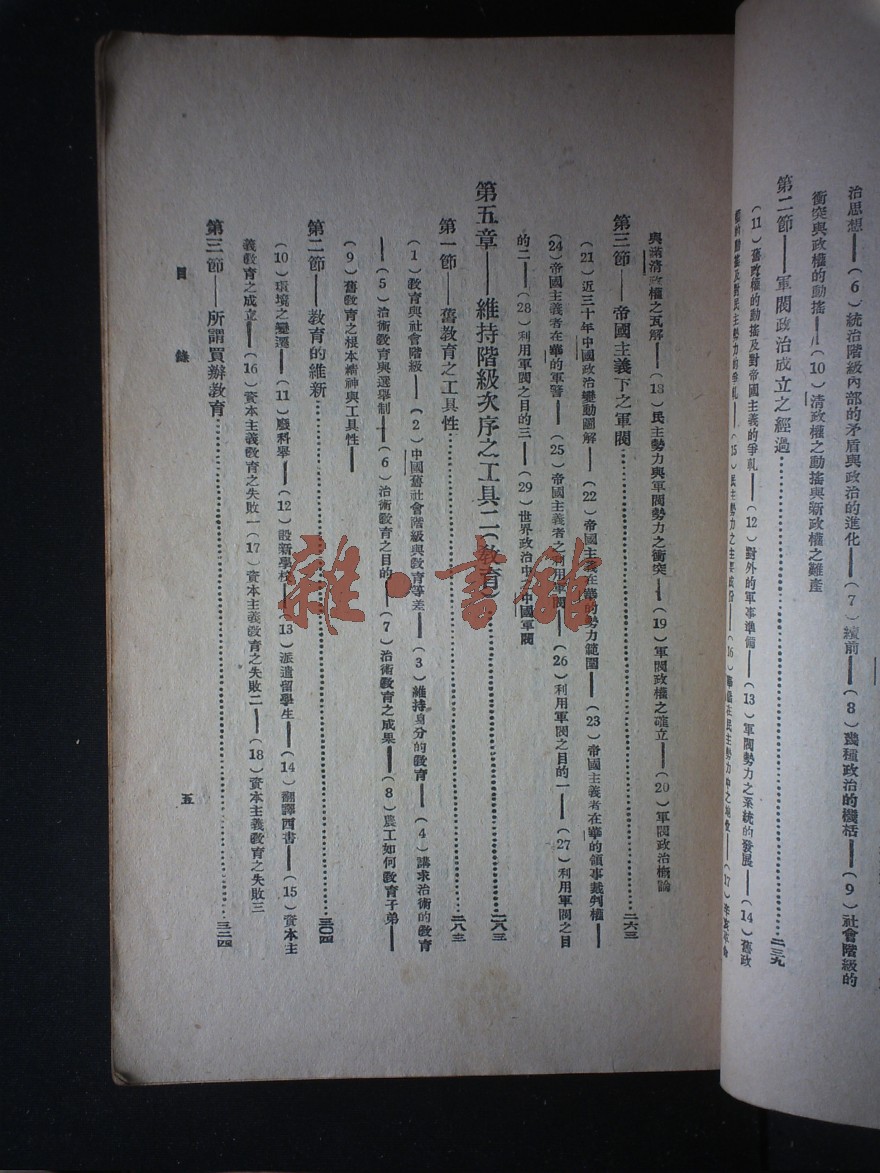 治思想——(6)統治階級內部的矛盾與政治的進化——(7)續前——(8)幾種政治的機括——(9)社會階級的
衝突與政權的動搖——(10)清政權之動搖與新政權之難產
第二節——軍閥政治成立之經過……二三九
(11)舊政權的動搖及對帝國主義的爭扎——(12)對外的軍事準備——(13)軍閥勢力之系統的發展——(14)舊政
權的動搖及對民主勢力的爭扎——(15)民主勢力之主要成份——(16)華僑在民主勢力中之地位——(17)
與滿清政權之瓦解——(18)民主勢力與軍閥勢力之衝突——(19)軍閥政權之確立——(20)軍閥政治概論
第三節——帝國主義下之軍閥……二六三
(21)近三十年中國政治變動圖解——(22)帝國主義在華的勢力範圍——(23)帝國主義者在華的領事裁判權——
(24)帝國主義者在華的軍警——(25)帝國主義者之利用軍閥——(26)利用軍閥之目的一——(27)利用軍閥之目
的二——(28)利用軍閥之目的三——(29)世界政治中之中國軍閥
第五章——維持階級次序之工具二(教育)……二八三
第一節——舊教育之工具性……二八三
(1)教育與社會階級——(2)中國舊社會階級與教育等差——(3)維持身分的教育——(4)講求治術的教育
——(5)治術教育與選舉制——(6)治術教育之目的——(7)治術教育之成果——(8)農工如何教育子弟——
(9)舊教育之根本精神與工具性——
第二節——教育的維新……三〇四
(10)環境之變遷——(11)廢科舉——(12)設新學校——(13)派遣留學生——(14)翻譯西書——(15)資本主
義教育之成立——(16)資本主義教育之失敗一(17)資本主義教育之失敗二——(18)資本主義教育之失敗三
第三節——所謂買辦教育……三二四
目錄
五
雜·書館